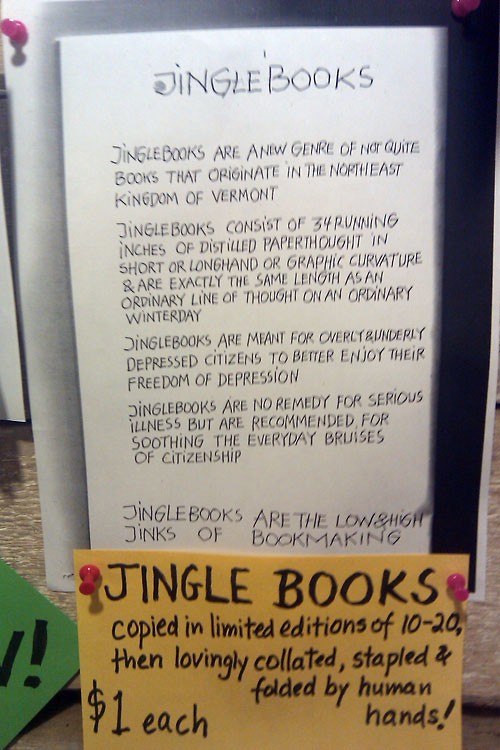 JINGLEBOOKS
JINGLEBOOKS ARE A NEW GENRE OF NOT QUITE
BOOKS THAT ORIGINATE IN THE NORTHEAST
KINGDOM OF VERMONT
JINGLEBOOKS CONSIST OF 34 RUNNING
INCHES OF DISTILLED PAPERTHOUGHT IN
SHORT OR LONGHAND OR GRAPHIC CURVATURE
& ARE EXACTLY THE SAME LENGTH AS AN
ORDINARY LINE OF THOUGHT ON AN ORDINARY
WINTERDAY
JINGLEBOOKS ARE MEANT FOR OVERLY & UNDERLY
DEPRESSED CITIZENS TO BETTER ENJOY THEIR
FREEDOM OF DEPRESSION
JINGLEBOOKS ARE NO REMEDY FOR SERIOUS
ILLNESS BUT ARE RECOMMENDED FOR
SOOTHING THE EVERYDAY BRUISES
OF CITIZENSHIP
JINGLEBOOKS ARE THE LOW & HIGH
JINKS OF BOOKMAKING
JINGLE BOOKS
copied in limited editions of 10-20,
then lovingly collated, stapled &
folded by human
hands!
$1 each